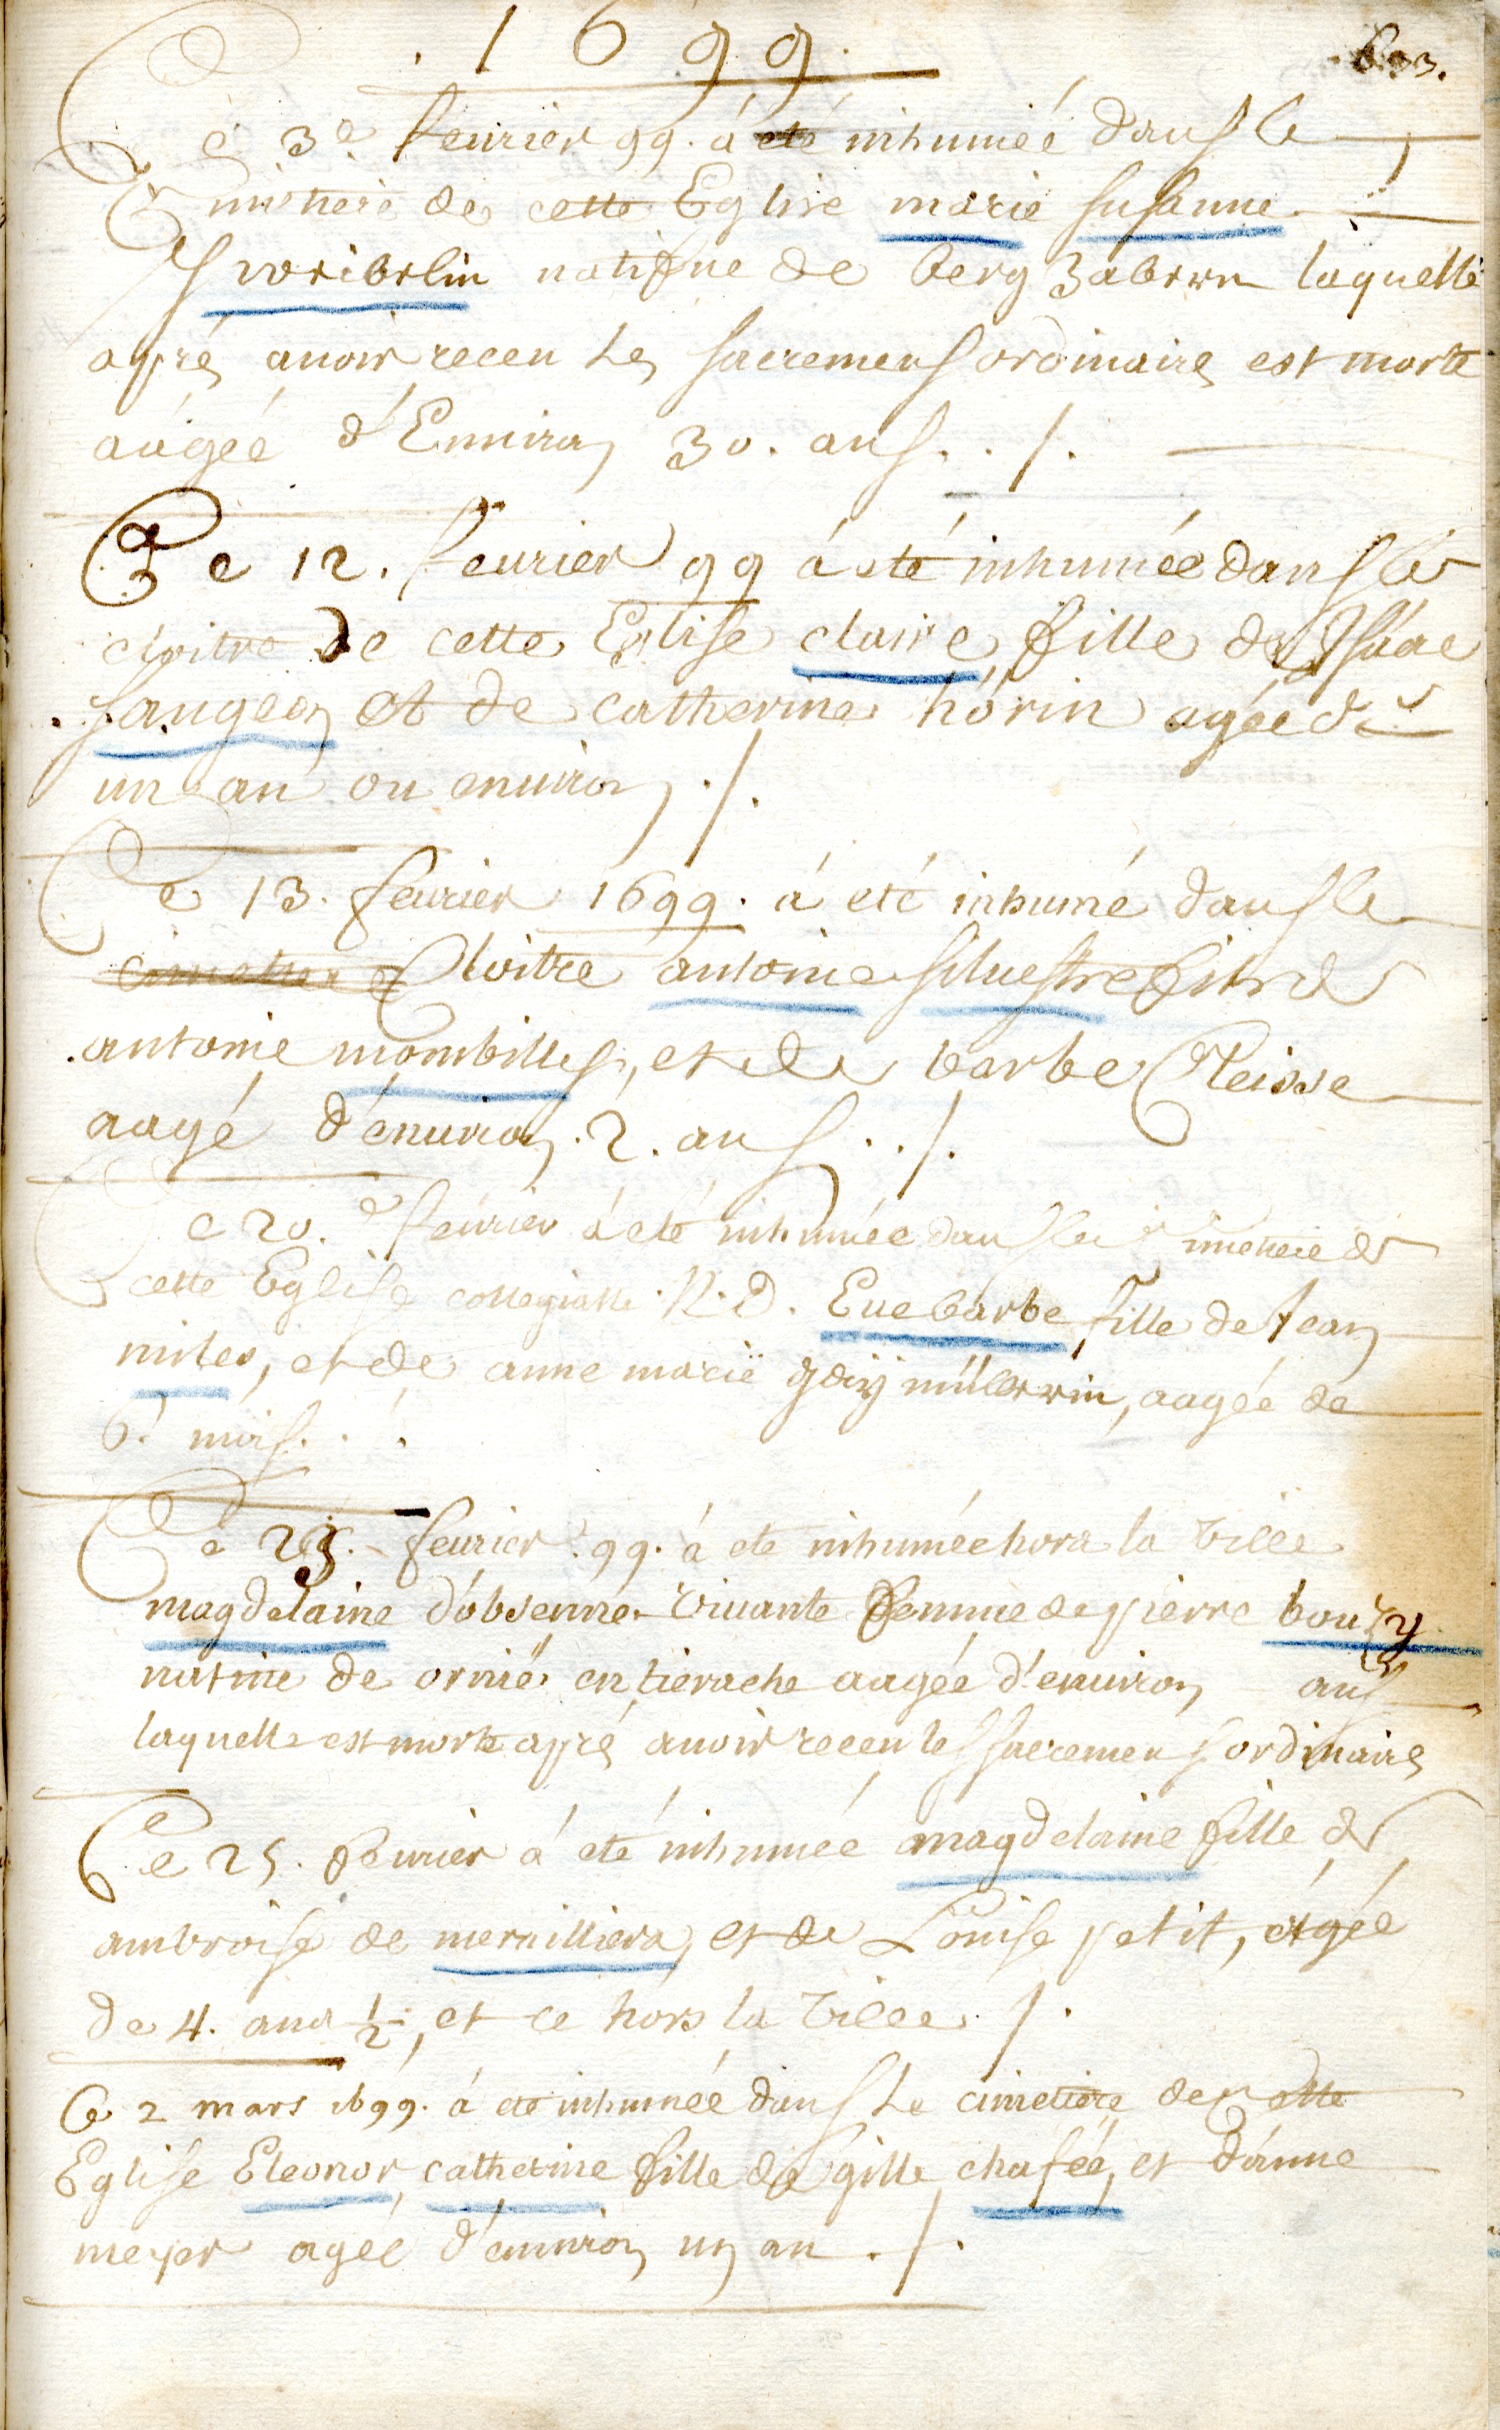 1699.
633.
Ce 3e feurier 99. á eté inhumée dans le
Cimetiere de cette Eglise marie susanne
Schreibelin natifue de berg Zabern laquelle
apré auoir receu les sacremens ordinaires est morte
aágée d'Enuiron 30. ans. . /.
Ce 12. feurier 99 á eté inhumée dans le
cloitre de cette Eglise claire fille de Isáac
faugeon et de catherine hórin agée de
un an ou enuiron ./.
Ce 13. feurier 1699. á eté inhumé dans le
cimetiere Cloitre antoine siluestre fils de
antoine mombilles, et de barbe Cleisse
aagé d'enuiron .2. ans. ./.
Ce 20. e feurier á eté inhumée dans le cimetiere de
cette Eglise collegialle .N.D. Eue barbe fille de Jean
miles, et de anne marie müllerrin, aagée de
6. mois. . .
Ce 25. feurier .99. á eté inhumée hors la ville
magdelaine d'obsenne viuante femme de pierre bouzy
natiue de ornié en tierache aagée d'enuiron ans
laquelle est morte apré auoir receu les sacremens ordinaires
Ce 25. feurier á eté inhumée magdelaine fille de
ambroise de meruilliers, et de Louise petit, agée
de 4. ans 1/2, et ce hors la ville. /.
Ce 2 mars 1699. á eté inhumée dans le cimetiere de cette
Eglise Eleonor catherine fille de gille chafée, et d'anne
meyer agée d'enuiron un an . /.